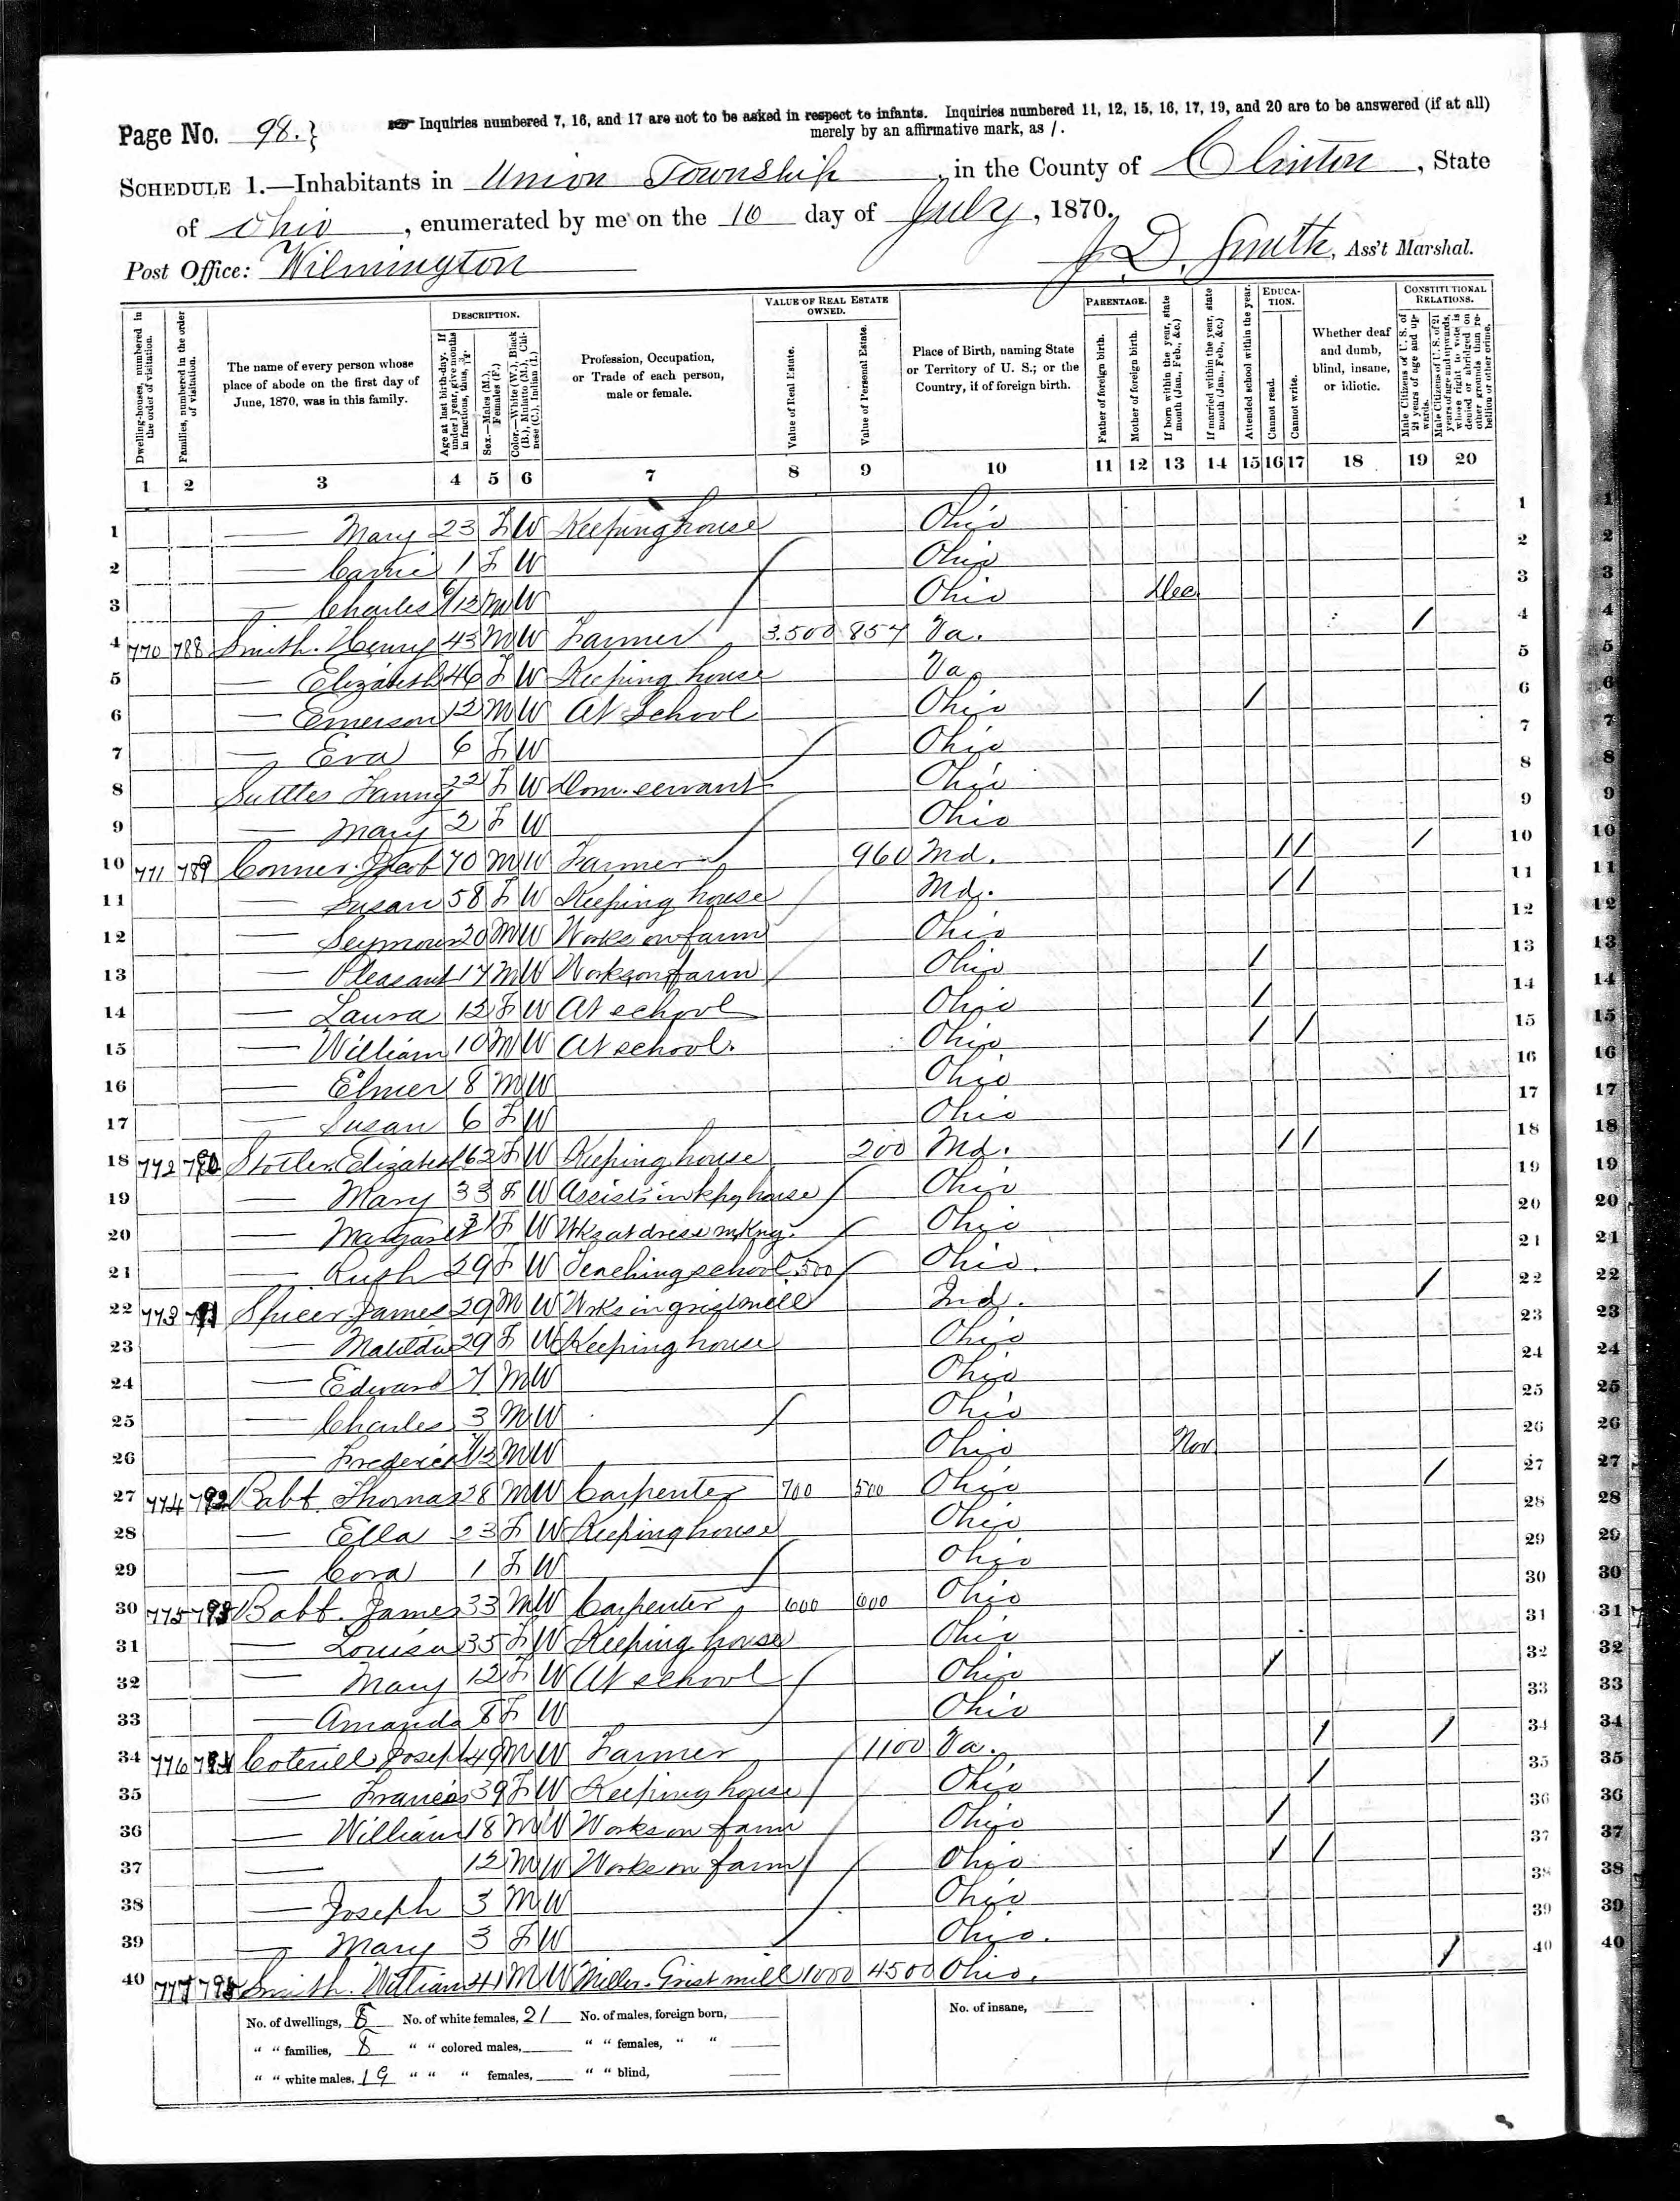 Page No. 98.}
☞ Inquiries numbered 7, 16, and 17 are not to be asked in respect to infants. Inquiries numbered 11, 12, 15, 16, 17, 19, and 20 are to be answered (if at all)
merely by an affirmative mark, as /.
SCHEDULE 1.—Inhabitants in Union Township, in the County of Clinton, State
of Ohio, enumerated by me on the 16 day of July, 1870.
Post Office: Wilmington J. D. Smith, Ass't Marshal.
Dwelling-houses, numbered in the order of visitation.
Families, numbered in the order of visitation.
The name of every person whose place of abode on the first day of June, 1870, was in this family.
DESCRIPTION.
Age at last birth-day. If under 1 year, give months in fractions, thus, 3/12.
Sex.—Males (M.), Females (F.)
Color.—White (W.), Black (B.), Mulatto (M.), Chinese (C.), Indian (I.)
Profession, Occupation, or Trade of each person, male or female.
VALUE OF REAL ESTATE OWNED.
Value of Real Estate.
Value of Personal Estate.
Place of Birth, naming State or Territory of U. S.; or the Country, if of foreign birth.
PARENTAGE.
Father of foreign birth.
Mother of foreign birth.
If born within the year, state month (Jan., Feb., &c.)
If married within the year, state month (Jan., Feb., &c.)
Attended school within the year.
EDUCATION.
Cannot read.
Cannot write.
Whether deaf and dumb, blind, insane, or idiotic.
CONSTITUTIONAL RELATIONS.
Male Citizens of U. S. of 21 years of age and upwards.
Male Citizens of U. S. of 21 years of age and upwards, whose right to vote is denied or abridged on other grounds than rebellion or other crime.
1 2 3 4 5 6 7 8 9 10 11 12 13 14 15 16 17 18 19 20
1 — Mary 23 F W Keeping house Ohio 1
2 — Carrie 1 F W Ohio 2
3 — Charles 6/12 M W Ohio Dec 3
4 770 788 Smith. Henry 43 M W Farmer 3.500 857 Va. / 4
5 — Elizabeth 46 F W Keeping house Va. 5
6 — Emerson 12 M W At School Ohio / 6
7 — Eva 6 F W Ohio 7
8 Suttles Fanny 22 F W Dom. servant Ohio 8
9 — Mary 2 F W Ohio 9
10 771 789 Conner. Jacob 70 M W Farmer 960 Md. / / / 10
11 — Susan 58 F W Keeping house Md. / / 11
12 — Seymour 20 M W Works on farm Ohio 12
13 — Pleasant 17 M W Works on farm Ohio / 13
14 — Laura 12 F W At school Ohio / 14
15 — William 10 M W At school. Ohio / / 15
16 — Elmer 8 M W Ohio 16
17 — Susan 6 F W Ohio 17
18 772 790 Stotler. Elizabeth 62 F W Keeping house 200 Md. / / 18
19 — Mary 33 F W Assists in kpg house Ohio 19
20 — Margaret 31 F W Wks at dress mkng. Ohio 20
21 — Ruth 29 F W Teaching school 500 Ohio. 21
22 773 791 Spicer. James 29 M W Wrks in grist mill Ind. / 22
23 — Matilda 29 F W Keeping house Ohio 23
24 — Edward 7 M W Ohio 24
25 — Charles 3 M W Ohio 25
26 — Frederick M W Ohio Nov 26
27 774 792 Babb. Thomas 28 M W Carpenter 700 500 Ohio / 27
28 — Ella 23 F W Keeping house Ohio 28
29 — Cora 1 F W Ohio 29
30 775 793 Babb. James 33 M W Carpenter 600 600 Ohio 30
31 — Louisa 35 F W Keeping house Ohio 31
32 — Mary 12 F W At school Ohio / 32
33 — Amanda 8 F W Ohio 33
34 776 794 Coterill Joseph 49 M W Farmer 1100 Va. / / 34
35 — Francis 39 F W Keeping house Ohio / 35
36 — William 18 M W Works on farm Ohio / 36
37 — 12 M W Works on farm Ohio / / 37
38 — Joseph 3 M W Ohio 38
39 — Mary 3 F W Ohio. 39
40 777 795 Smith. William 41 M W Miller. Grist mill 1000 4500 Ohio. / 40
No. of dwellings, 8 No. of white females, 21 No. of males, foreign born, No. of insane,
" " families, 8 " " colored males, " " females, " "
" " white males, 19 " " " females, " " blind,
1
2
3
4
5
6
7
8
9
10
11
12
13
14
15
16
17
18
19
20
21
22
23
24
25
26
27
28
29
30
31
32
33
34
35
36
37
38
39
40